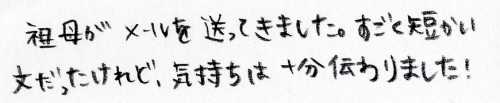 祖母が メールを 送ってきました。すごく短かい
文だったけれど、気持ちは 十分伝わりました!